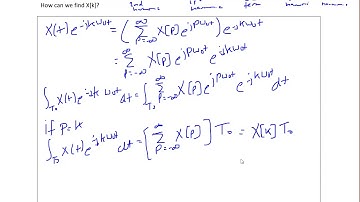 How can we find X[k]?
X(t) e^{-jkω₀t} = (∑_{p=-∞}^{∞} X[p] e^{jpω₀t}) e^{-jkω₀t}
= ∑_{p=-∞}^{∞} X[p] e^{jpω₀t} e^{-jkω₀t}
∫_{T₀} X(t) e^{-jkω₀t} dt = ∫_{T₀} ∑_{p=-∞}^{∞} X[p] e^{jpω₀t} e^{-jkω₀t} dt
if p=k
∫_{T₀} X(t) e^{-jkω₀t} dt = [∑_{p=-∞}^{∞} X[p]] T₀ = X[k] T₀